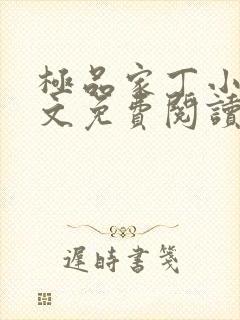 極品家丁小
文免費閱讀
遲時書箋